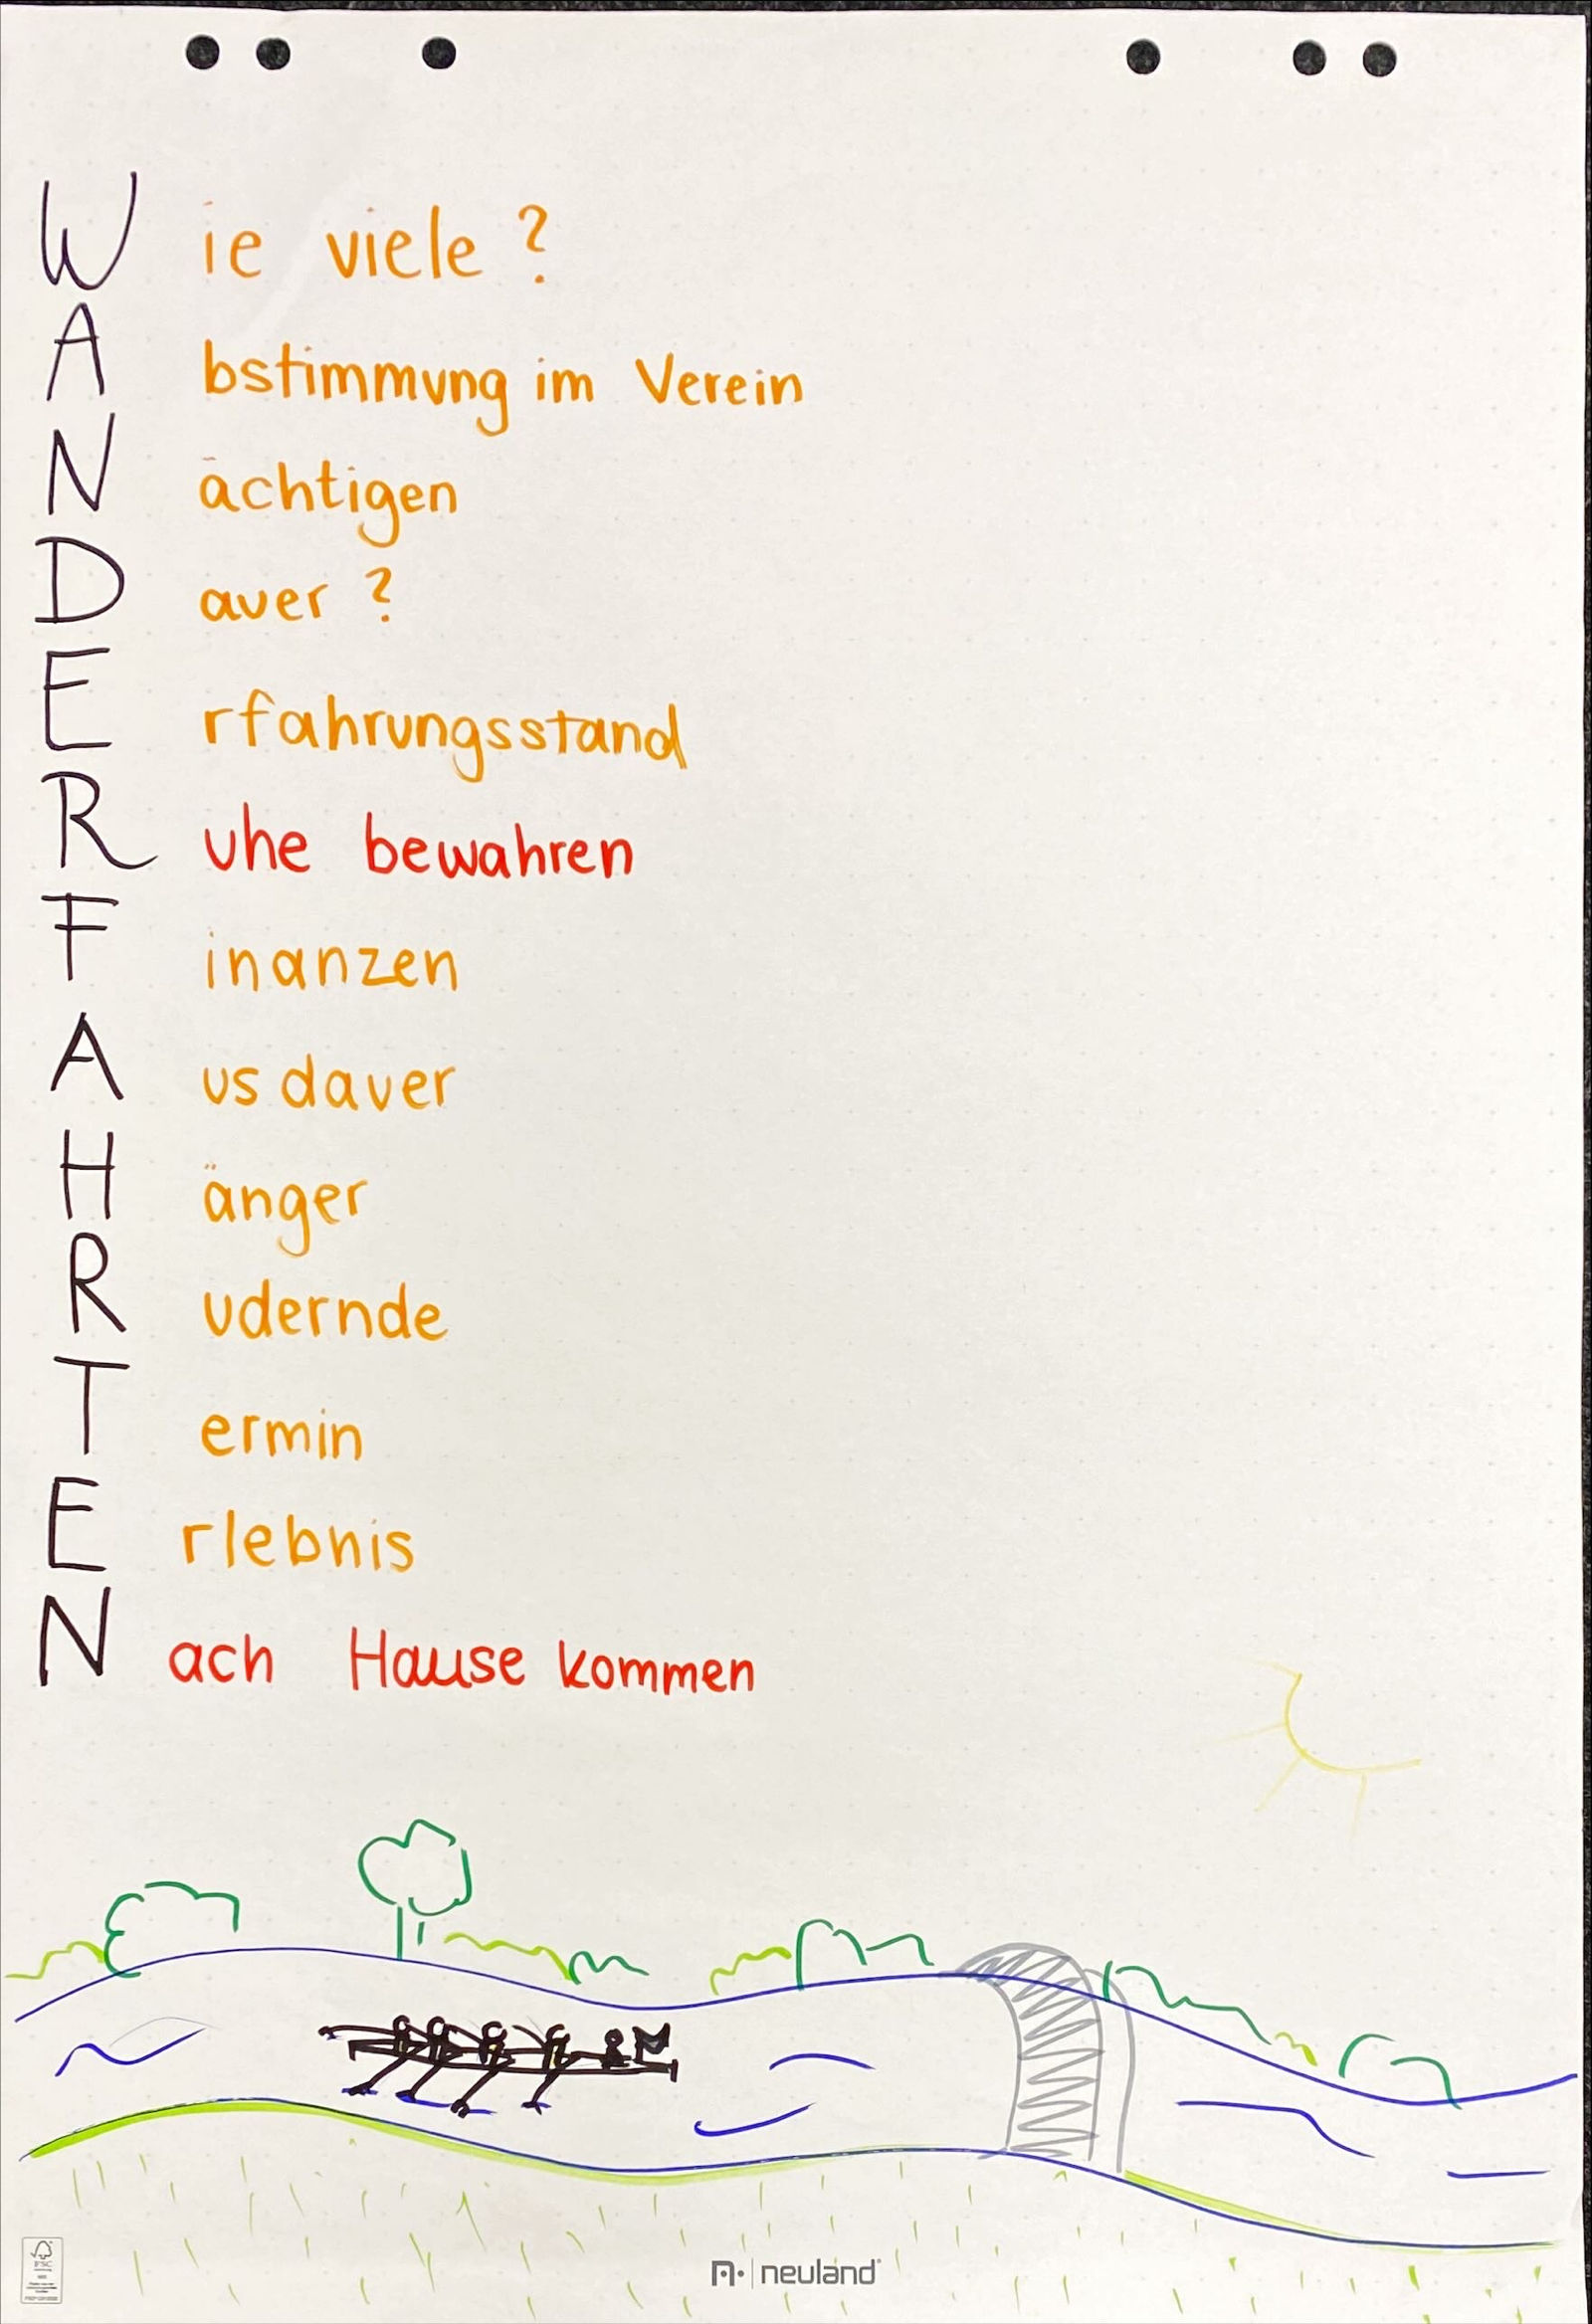 W ie viele ?
A bstimmung im Verein
N ächtigen
D auer ?
E rfahrungsstand
R uhe bewahren
F inanzen
A usdauer
H änger
R udernde
T ermin
E rlebnis
N ach Hause kommen
neuland
FSC